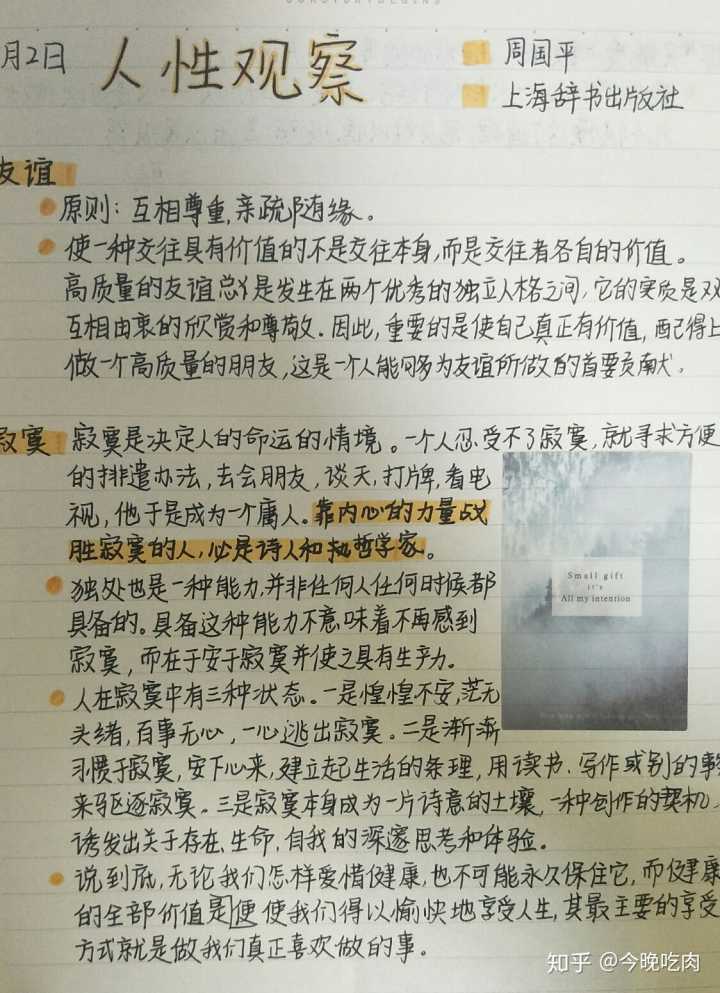 月2日 人性观察 周国平
上海辞书出版社
友谊
原则：互相尊重,亲疏随缘。
使一种交往具有价值的不是交往本身,而是交往者各自的价值。
高质量的友谊总是发生在两个优秀的独立人格之间,它的实质是双
互相由衷的欣赏和尊敬.因此,重要的是使自己真正有价值,配得上
做一个高质量的朋友,这是一个人能够为友谊所做的首要贡献。
寂寞 寂寞是决定人的命运的情境。一个人忍受不了寂寞,就寻求方便
的排遣办法,去会朋友,谈天,打牌,看电
视,他于是成为一个庸人。靠内心的力量战
胜寂寞的人,必是诗人和哲学家。
独处也是一种能力,并非任何人任何时候都
具备的。具备这种能力不意味着不再感到
寂寞,而在于安于寂寞并使之具有生产力。
人在寂寞中有三种状态。一是惶惶不安,茫无
头绪,百事无心,一心逃出寂寞。二是渐渐
习惯于寂寞,安下心来,建立起生活的条理,用读书.写作或别的事
来驱逐寂寞。三是寂寞本身成为一片诗意的土壤,一种创作的契机,
诱发出关于存在.生命.自我的深邃思考和体验。
说到底,无论我们怎样爱惜健康,也不可能永久保住它,而健康
的全部价值是便使我们得以愉快地享受人生,其最主要的享受
方式就是做我们真正喜欢做的事。
Small gift
it's
All my intention
知乎 @今晚吃肉